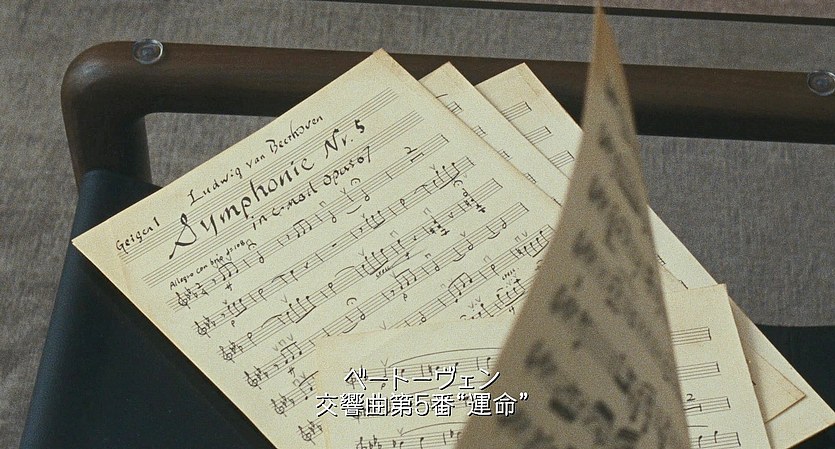 Ludwig van Beethoven
Geigen 1
Symphonie Nr. 5
in c-moll opus 67
Allegro con brio
ベートーヴェン
交響曲第5番“運命”